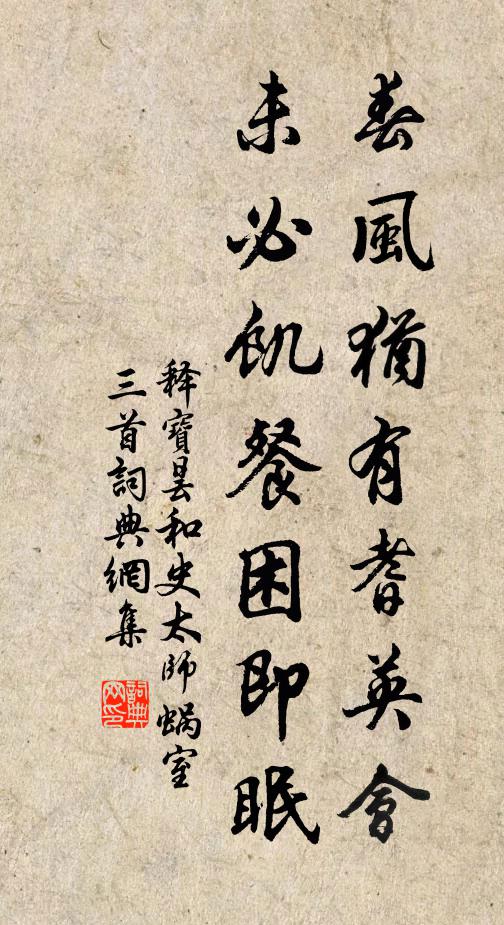 春風猶有耆英會
未必飢餐困即眠
释寶曇和史太師蝸室
三首詞典網集
詞典網印